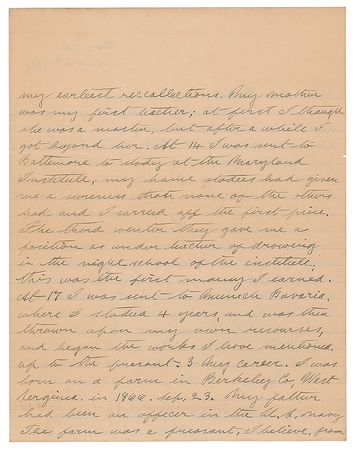 my earleest reccollections. My mother
was my first teacher; at first I though
she was a master, but after a while I
got beyond her. At 14 I was sent to
Baltemore to study at the Maryland
Institute, my home studies had given
me a sureness that none of the others
had and I carred off the first price.
The third wenter they gave me a
position as under teacher of drowing
in the night school of the institute,
this was the first money I earned.
At 17 I was sent to Muneech Bavaria,
where I studied 4 years, and was then
thrown upon my own resourses,
and began the works I have mentioned
up to the present. 3 My career. I was
born on a farm in Berkeley Co, West
Vergenea, in 1866. sep. 23. My father
had been an offecer in the U.S. navy
The farm was a present, I believe, from